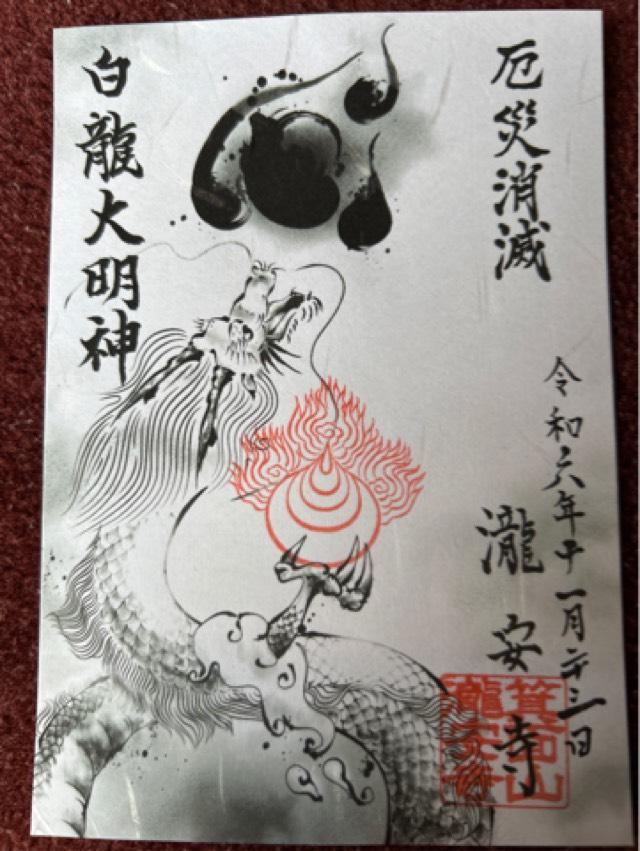 厄災消滅
令和六年十一月二十三日
瀧安寺
箕面山
瀧安寺
白龍大明神